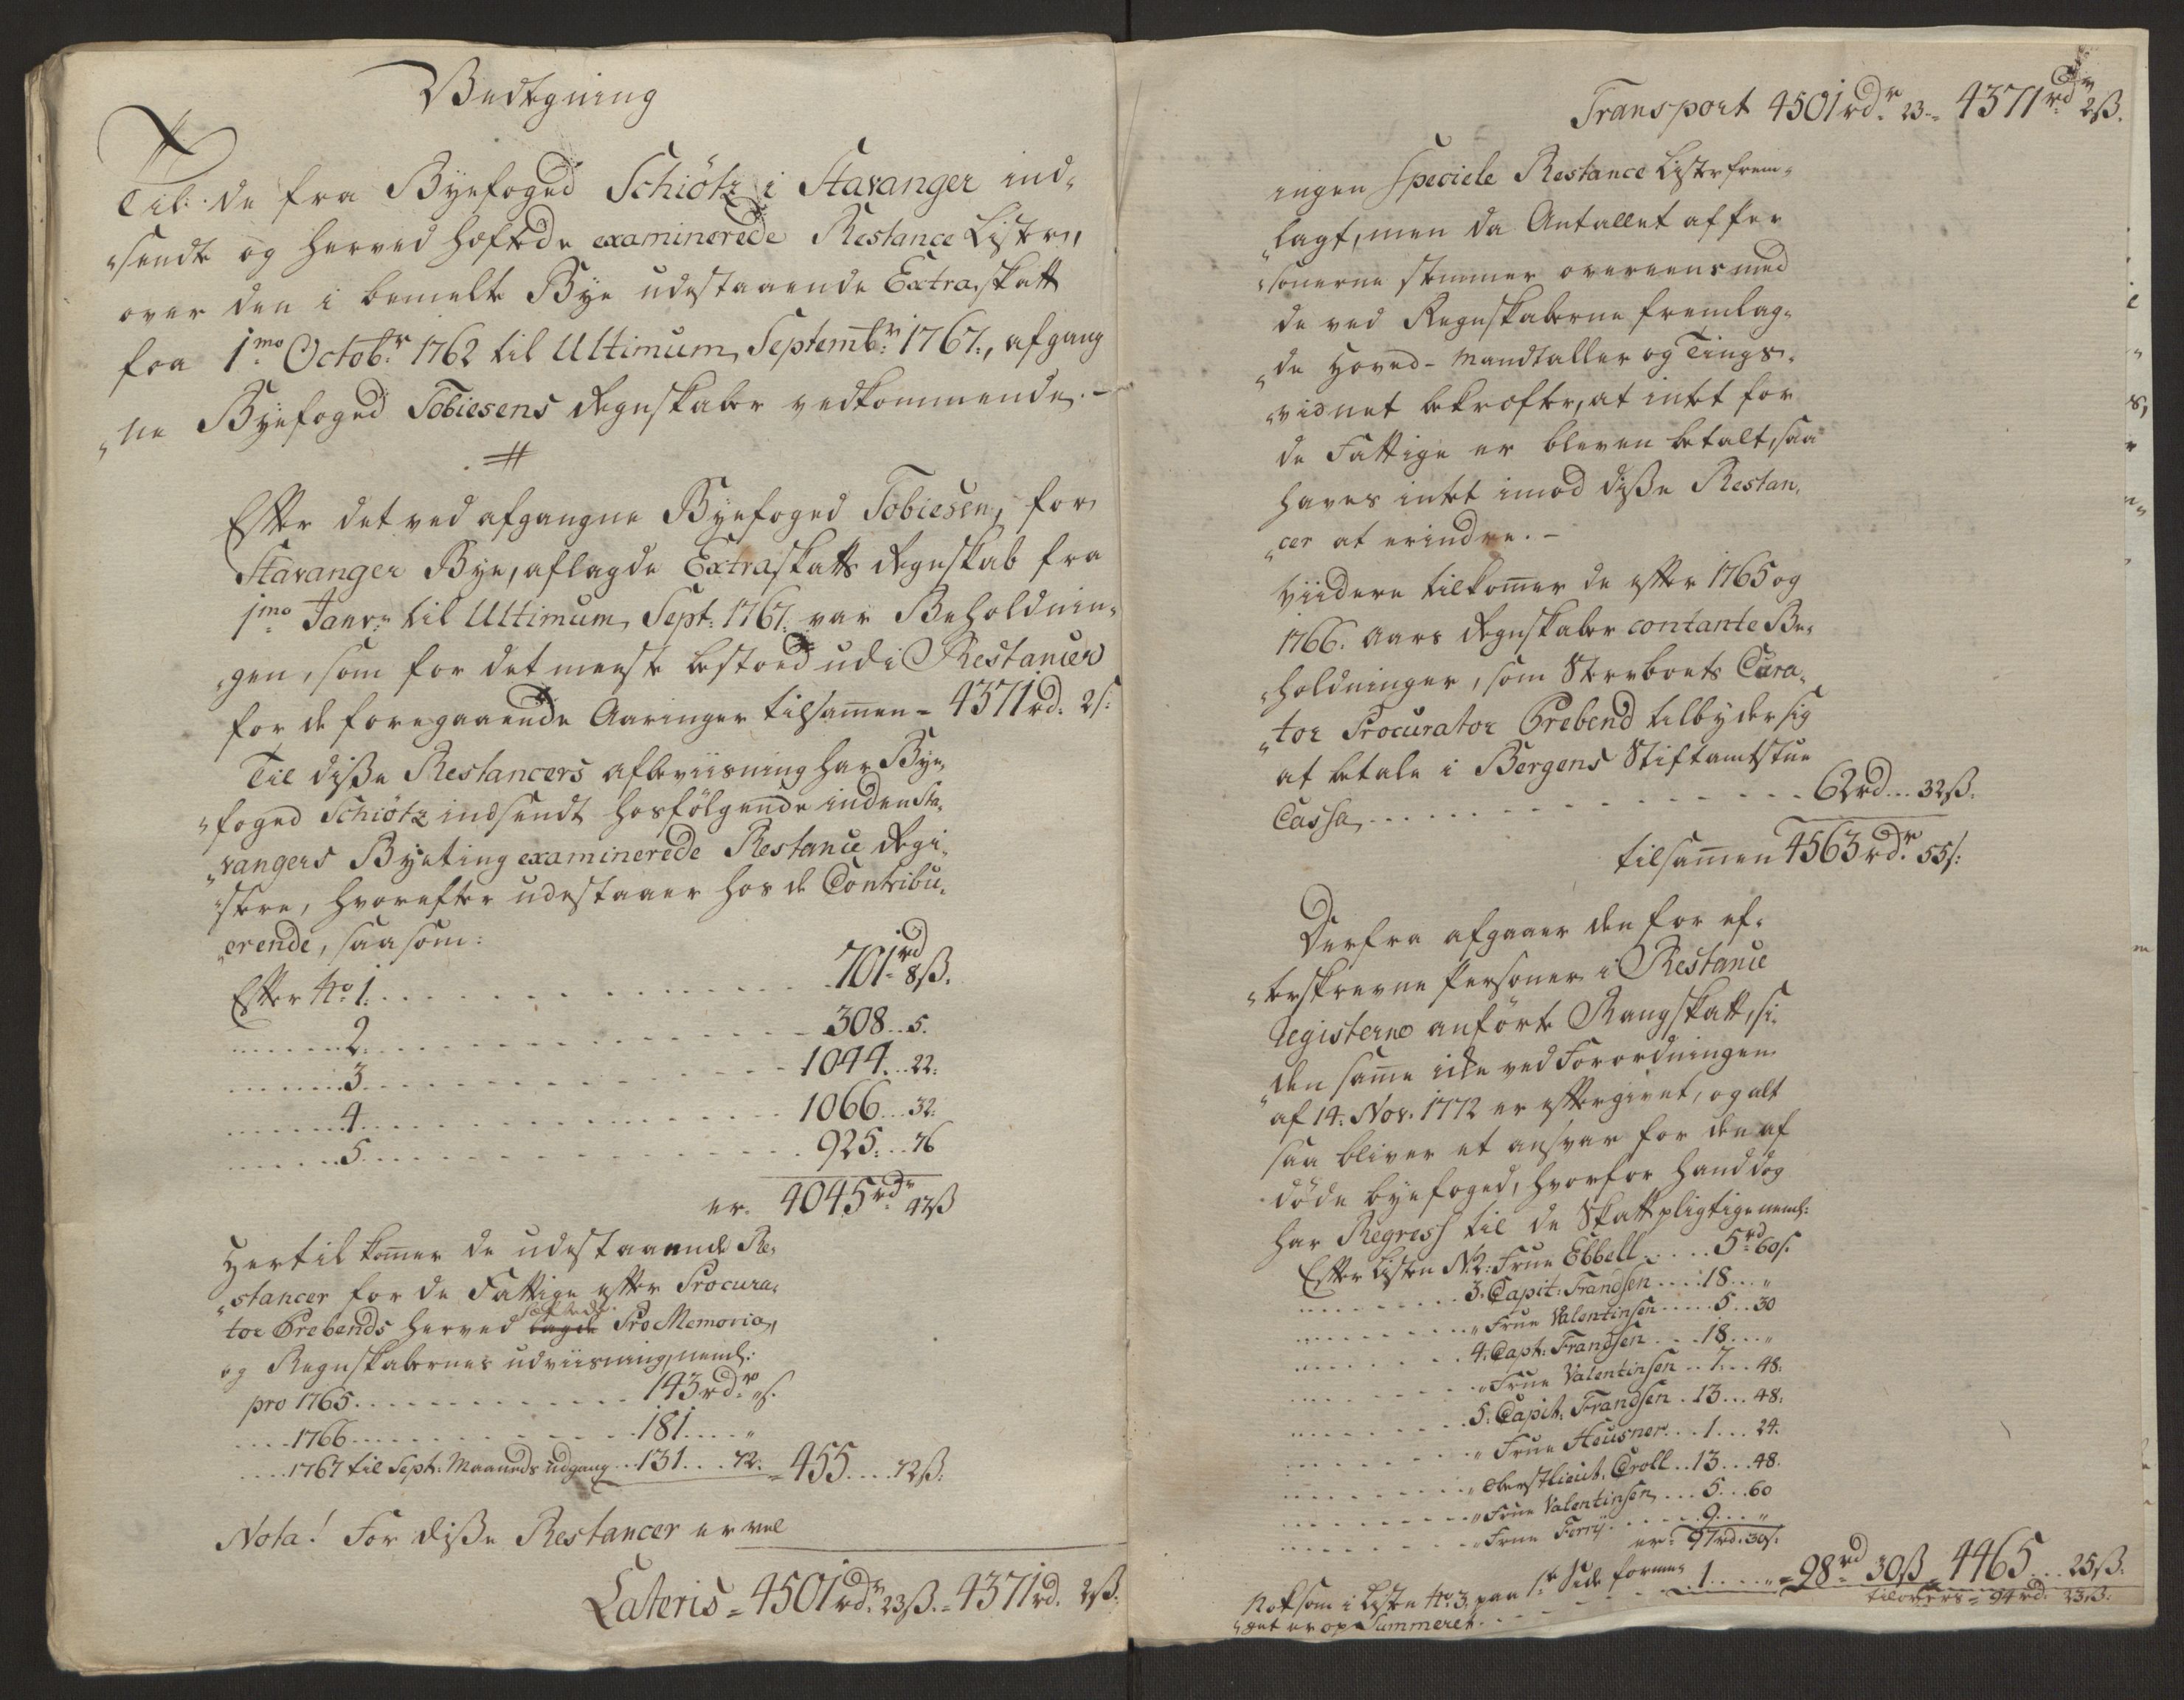 Betegning
Til de fra Byefoged Schiötz i Stavanger ind-
"sendte og herved hæftede examinerede Restance Lister,
over den i bemelte Bye udestaaende Extra skatt
fra 1mo Octobr 1762 til Ultimum Septembr: 1767, afgang
"ne Byefoged Tobiesens Regnskaber vedkommende. -
Efter det ved afgangne Byefoged Tobiesen, for
Stavanger Bye, aflagde Extraskatts Regnskab fra
1mo Janv: til Ultimum Sept: 1767. var Beholdnin-
"gen, som for det meeste bestoed udi Restancer
for de foregaaende Aaringer tilsamen = 4371rd: 2s:
Til disse Restancers afbeviisning har Bye-
"foged Schiötz indsendt hosfölgende inden Sta-
"vangers Byeting examinerede Restance Regi-
"stere, hvorefter udestaaer hos de Contribu-
"erende, saasom:
Efter No 1. . . . 701rd 8ß.
. . . 2. . . . 308. . 5.
. . . 3. . . . 1044. . . 22:
. . . 4. . . . 1066. . . 32:
. . . 5. . . . 925. . . 76
er. 4045rdr 47ß
Hertil komer de udestaaende Re-
"stancer for de Fattige efter Procura-
hæftede
tor Prebends herved lagde Pro Memoria,
og Regnskabernes udviisning, neml:
pro 1765. . . . 143rdr "s.
. . . 1766. . . . 181. . . . "
. . . 1767 til Sept: Maaneds udgang. . 131. . . 72. = 455. . . . 72ß:
Nota! For disse Restancer er vel
Lateris = 4501rdr 23ß. = 4371rd. 2ß:
Transport 4501rdr. 23. = 4371rdr 2ß.
ingen Speciele Restance Lister frem-
"lagt, men da Antallet af Per
"sonerne stemmer overeens med
de ved Regnskaberne fremlag-
"de Hoved-Mandtaller og Tings-
"vidnet bekræfter, at intet for
de Fattige er bleven betalt, saa
haves intet imod disse Restan-
"cer at erindre. -
Viidere tilkomer de efter 1765 og
1766. Aars Regnskaber contante Be-
"holdninger, som Sterboets Cura-
"tor Procurator Prebend tilbyder sig
at betale i Bergens Stiftamtstue
Cassa. . . . 62rd. . . 32ß.
tilsamen 4563rdr. 55s:
Derfra afgaaer den for ef-
"terskrevne Personer i Restance
Registerne anförte Rangskatt, si-
"den same icke ved Forordningen
af 14. Nov. 1772 er eftergivet, og alt
saa bliver et ansvar for den af
döde byefoged, hvorfor hand dog
har Regress til de Skattpligtige neml:
Efter Listen No 2: Frue Ebbell . . . 5rd 60s.
. . . 3. Capit: Frandsen . . . 18. . . "
. . . " Frue Valentinsen . . . 5. . 30
. . . 4. Capt: Frandsen . . . 18. . . "
. . . " Frue Valentinsen . . 7. . . 48:
. . . 5. Capit: Frandsen . 13. . . 48:
. . . " Frue Heusner. . . 1. . . 24.
. . . " Oberstlieut. Croll. . 13. . . 48.
. . . " Frue Valentinsen. . . 5. . . 60
. . . " Frue Ferrÿ. . . . 9. . . "
er: 97rd. 30s.
Nok som i Listen No 3. paa 1te Side formee-
"get er op Summeret. . . . 1. . . . " = 98rd 30ß = 4465. . . 25ß:
tilovers = 94rd. 23ß.